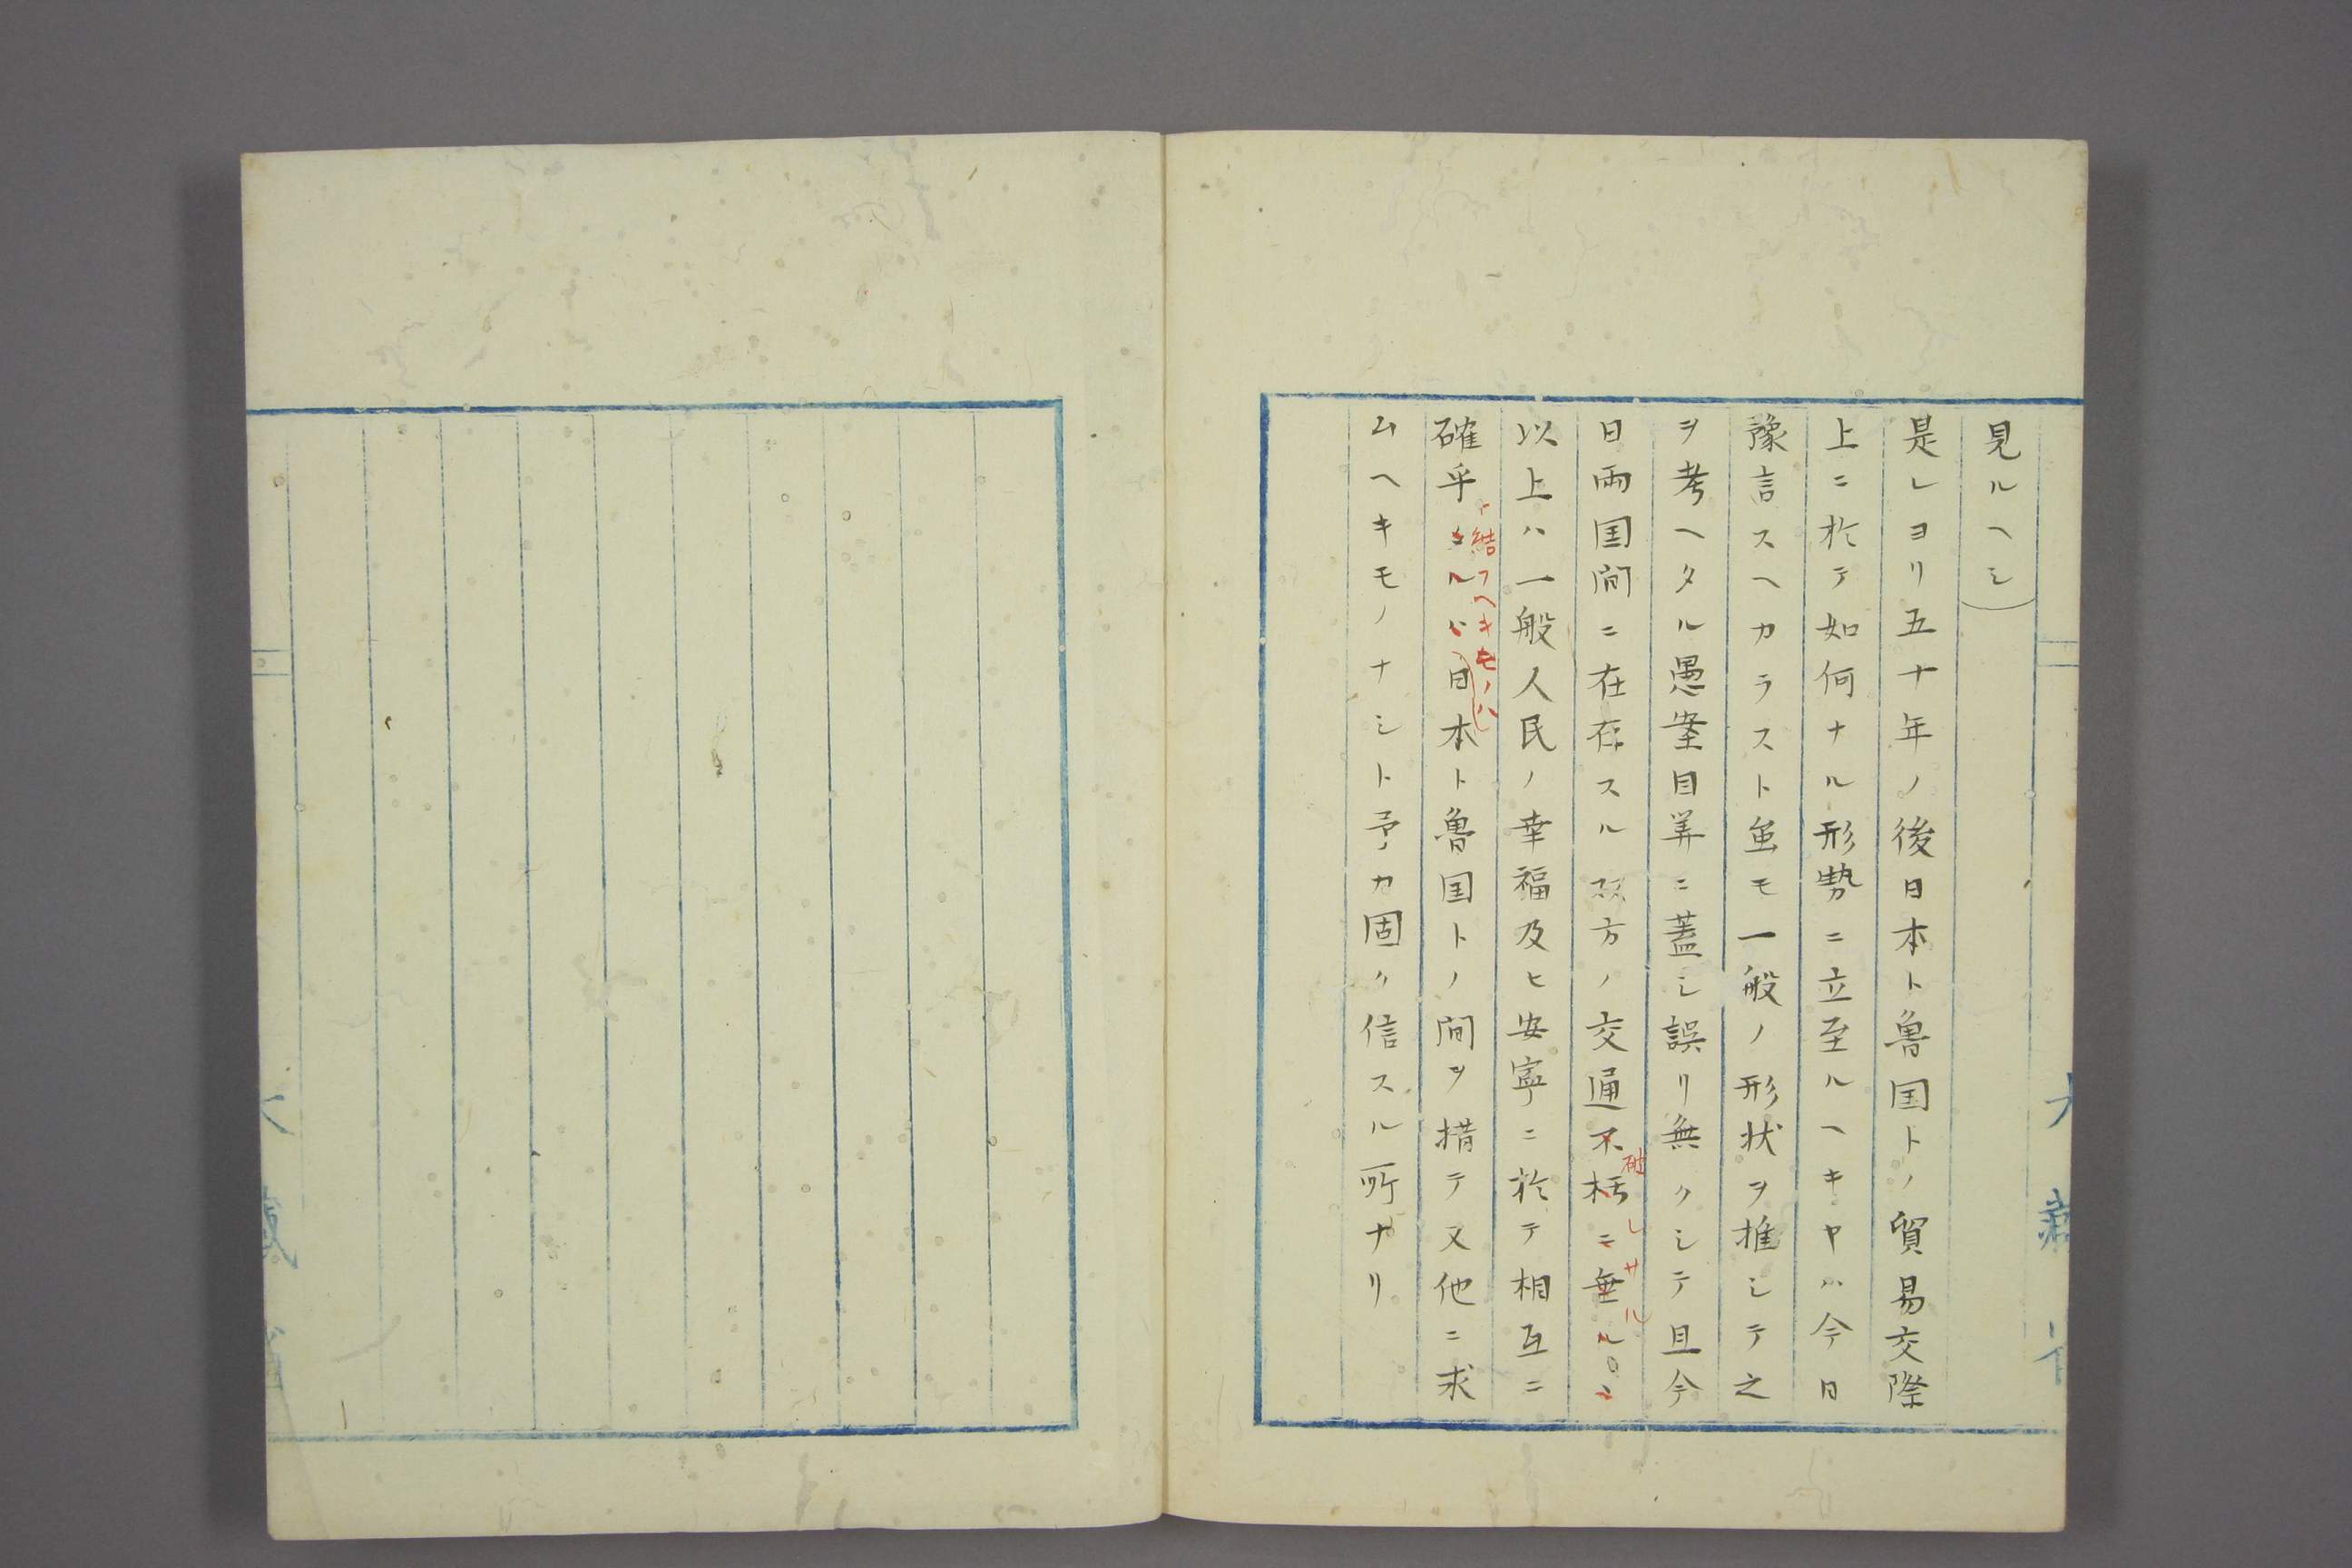 見ルヘシ)
是レヨリ五十年ノ後日本ト魯国トノ貿易交際
上ニ於テ如何ナル形勢ニ立至ルヘキヤハ今日
豫言スヘカラスト虽モ一般ノ形状ヲ推シテ之
ヲ考ヘタル愚案目算ニ蓋シ誤リ無クシテ且今
日両国間ニ在存スル双方ノ交通不朽ニ垂ルヽ
破レサル
以上ハ一般人民ノ幸福及ヒ安寧ニ於テ相互ニ
確乎タルハ日本ト魯国トノ間ヲ措テ又他ニ求
ト結フヘキモノハ
ムヘキモノナシト予カ固ク信スル所ナリ
大藏省